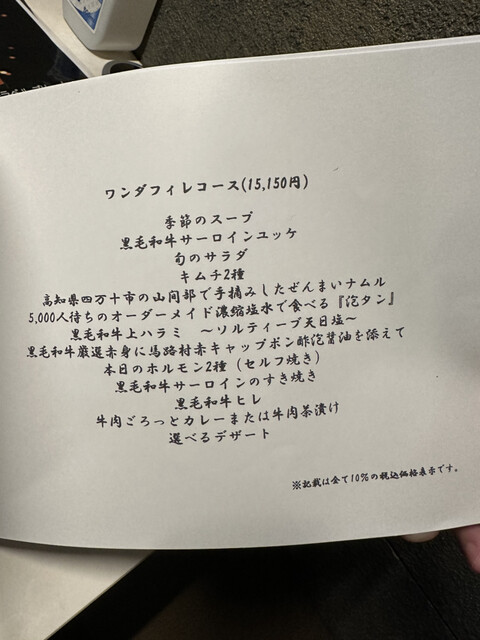 ワンダフィレコース(15,150円)
季節のスープ
黒毛和牛サーロインユッケ
旬のサラダ
キムチ2種
高知県四万十市の山間部で手摘みしたぜんまいナムル
5,000人待ちのオーダーメイド濃縮塩水で食べる『泡タン』
黒毛和牛上ハラミ　〜ソルティーブ天日塩〜
黒毛和牛厳選赤身に馬路村赤キャップポン酢泡醤油を添えて
本日のホルモン2種（セルフ焼き）
黒毛和牛サーロインのすき焼き
黒毛和牛ヒレ
牛肉ごろっとカレーまたは牛肉茶漬け
選べるデザート
※記載は全て10%の税込価格表示です。